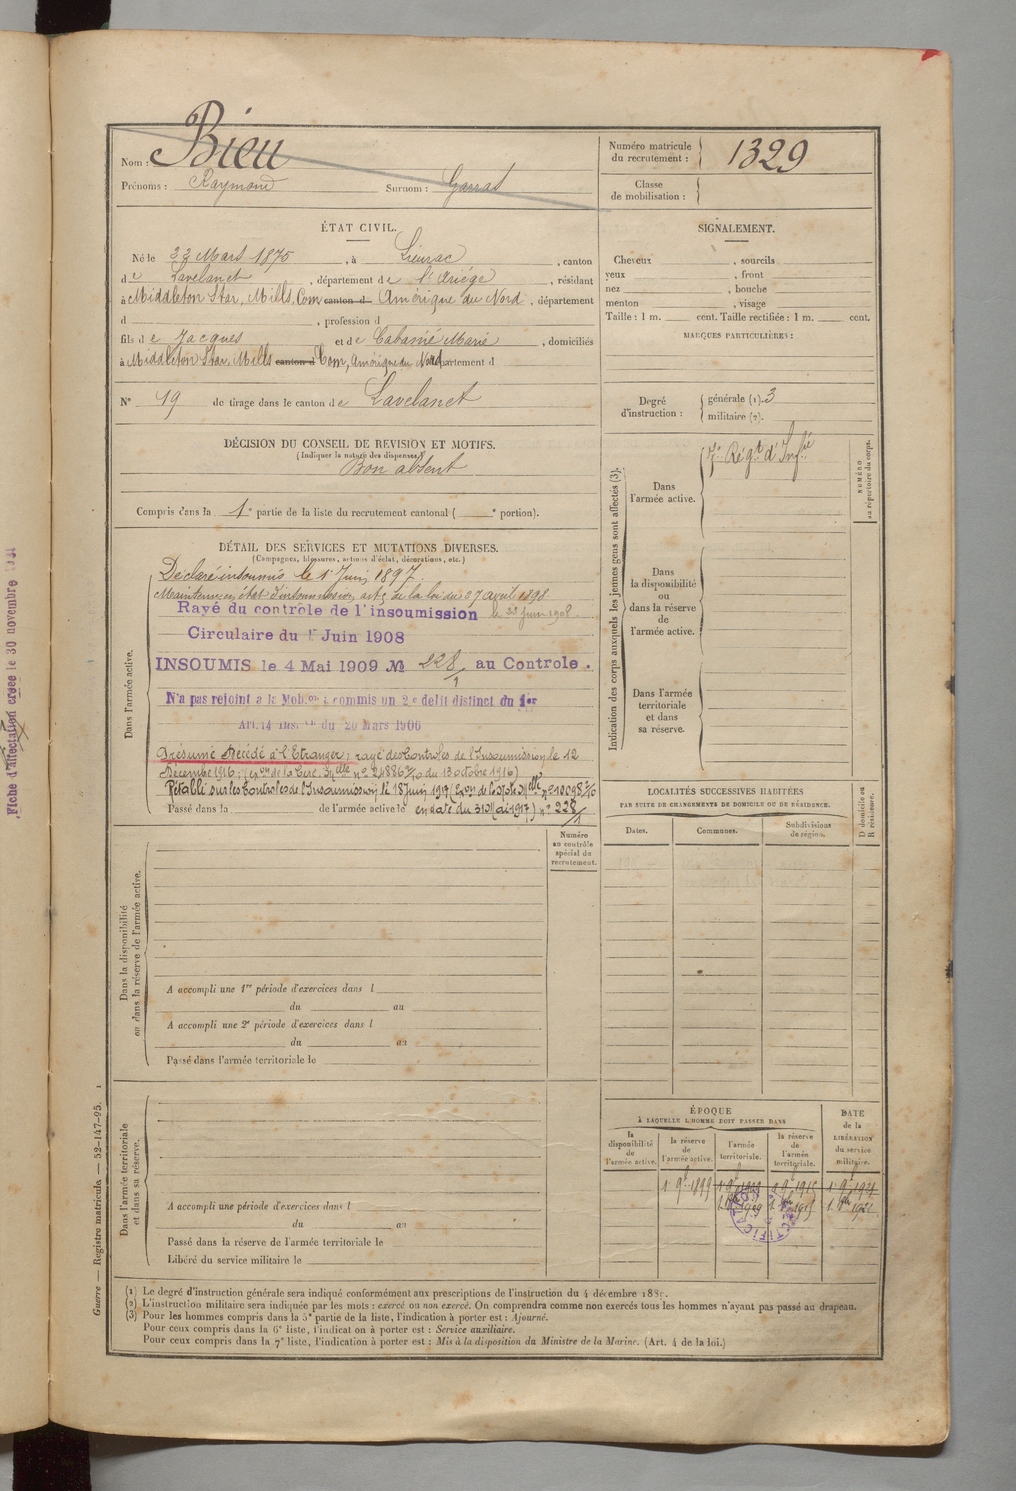 Nom : Bieu
Prénoms : Raymond Surnom : Garrat
Numéro matricule du recrutement : 1329
Classe de mobilisation :
ÉTAT CIVIL.
Né le 22 Mars 1875, à Lieurac, canton
de Lavelanet, département de l'Ariége, résidant
à Middleton Star, Mills, Com canton d Amérique du Nord, département
d , profession d
fils de Jacques et de Cabanié Marie, domiciliés
à Middleton Star, Mills canton d Com, Amérique du Nord département d
N° 19 de tirage dans le canton de Lavelanet
SIGNALEMENT.
Cheveux , sourcils
yeux , front
nez , bouche
menton , visage
Taille : 1 m. cent. Taille rectifiée : 1 m. cent.
MARQUES PARTICULIÈRES :
Degré d'instruction : générale (1). 3
militaire (2).
DÉCISION DU CONSEIL DE REVISION ET MOTIFS.
(Indiquer la nature des dispenses.)
Bon absent
Compris dans la 1e partie de la liste du recrutement cantonal ( e portion).
DÉTAIL DES SERVICES ET MUTATIONS DIVERSES.
(Campagnes, blessures, actions d'éclat, décorations, etc.)
Dans l'armée active.
Déclaré insoumis le 1er Juin 1897.
Maintenu en état d'insoumission, art. 5 de la loi du 27 avril 1898
Rayé du contrôle de l'insoumission le 22 Juin 1908
Circulaire du 1er Juin 1908
INSOUMIS le 4 Mai 1909 No 228/1 au Controle.
N'a pas rejoint à la Mobon à commis un 2e delit distinct du 1er
Art. 14 Inston du 20 Mars 1906
Présumé Décédé à l'Etranger ; rayé des Controles de l'Insoumission le 12
Décembre 1916 ; (exon de la Circ. 34elle no 24886 2/10 du 13 octobre 1916)
Rétabli sur les Controles de l'Insoumission, le 18 Juin 1917
en date du 31 Mai 1917) no 228/1
Passé dans la de l'armée active le
Indication des corps auxquels les jeunes gens sont affectés (3).
Dans l'armée active. 7e Régt d'Infie
NUMÉRO au répertoire du corps.
Dans la disponibilité ou dans la réserve de l'armée active.
Dans l'armée territoriale et dans sa réserve.
LOCALITÉS SUCCESSIVES HABITÉES
PAR SUITE DE CHANGEMENTS DE DOMICILE OU DE RÉSIDENCE.
Dates. Communes. Subdivisions de région. D domicile ou R résidence.
Numéro au contrôle spécial du recrutement.
Dans la disponibilité ou dans la réserve de l'armée active.
A accompli une 1re période d'exercices dans l
du au
A accompli une 2e période d'exercices dans l
du au
Passé dans l'armée territoriale le
Dans l'armée territoriale et dans sa réserve.
A accompli une période d'exercices dans l
du au
Passé dans la réserve de l'armée territoriale le
Libéré du service militaire le
ÉPOQUE
À LAQUELLE L'HOMME DOIT PASSER DANS
la disponibilité de l'armée active.
la réserve de l'armée active.
l'armée territoriale.
la réserve de l'armée territoriale.
DATE de la LIBÉRATION du service militaire.
1 9bre 1899
RECTIFICATION
(1) Le degré d'instruction générale sera indiqué conformément aux prescriptions de l'instruction du 4 décembre 1889.
(2) L'instruction militaire sera indiquée par les mots : exercé ou non exercé. On comprendra comme non exercés tous les hommes n'ayant pas passé au drapeau.
(3) Pour les hommes compris dans la 5e partie de la liste, l'indication à porter est : Ajourné.
Pour ceux compris dans la 6e liste, l'indication à porter est : Service auxiliaire.
Pour ceux compris dans la 7e liste, l'indication à porter est : Mis à la disposition du Ministre de la Marine. (Art. 4 de la loi.)
Guerre — Registre matricule. — 52-147-95.
Fiche d'affectation créée le 30 novembre